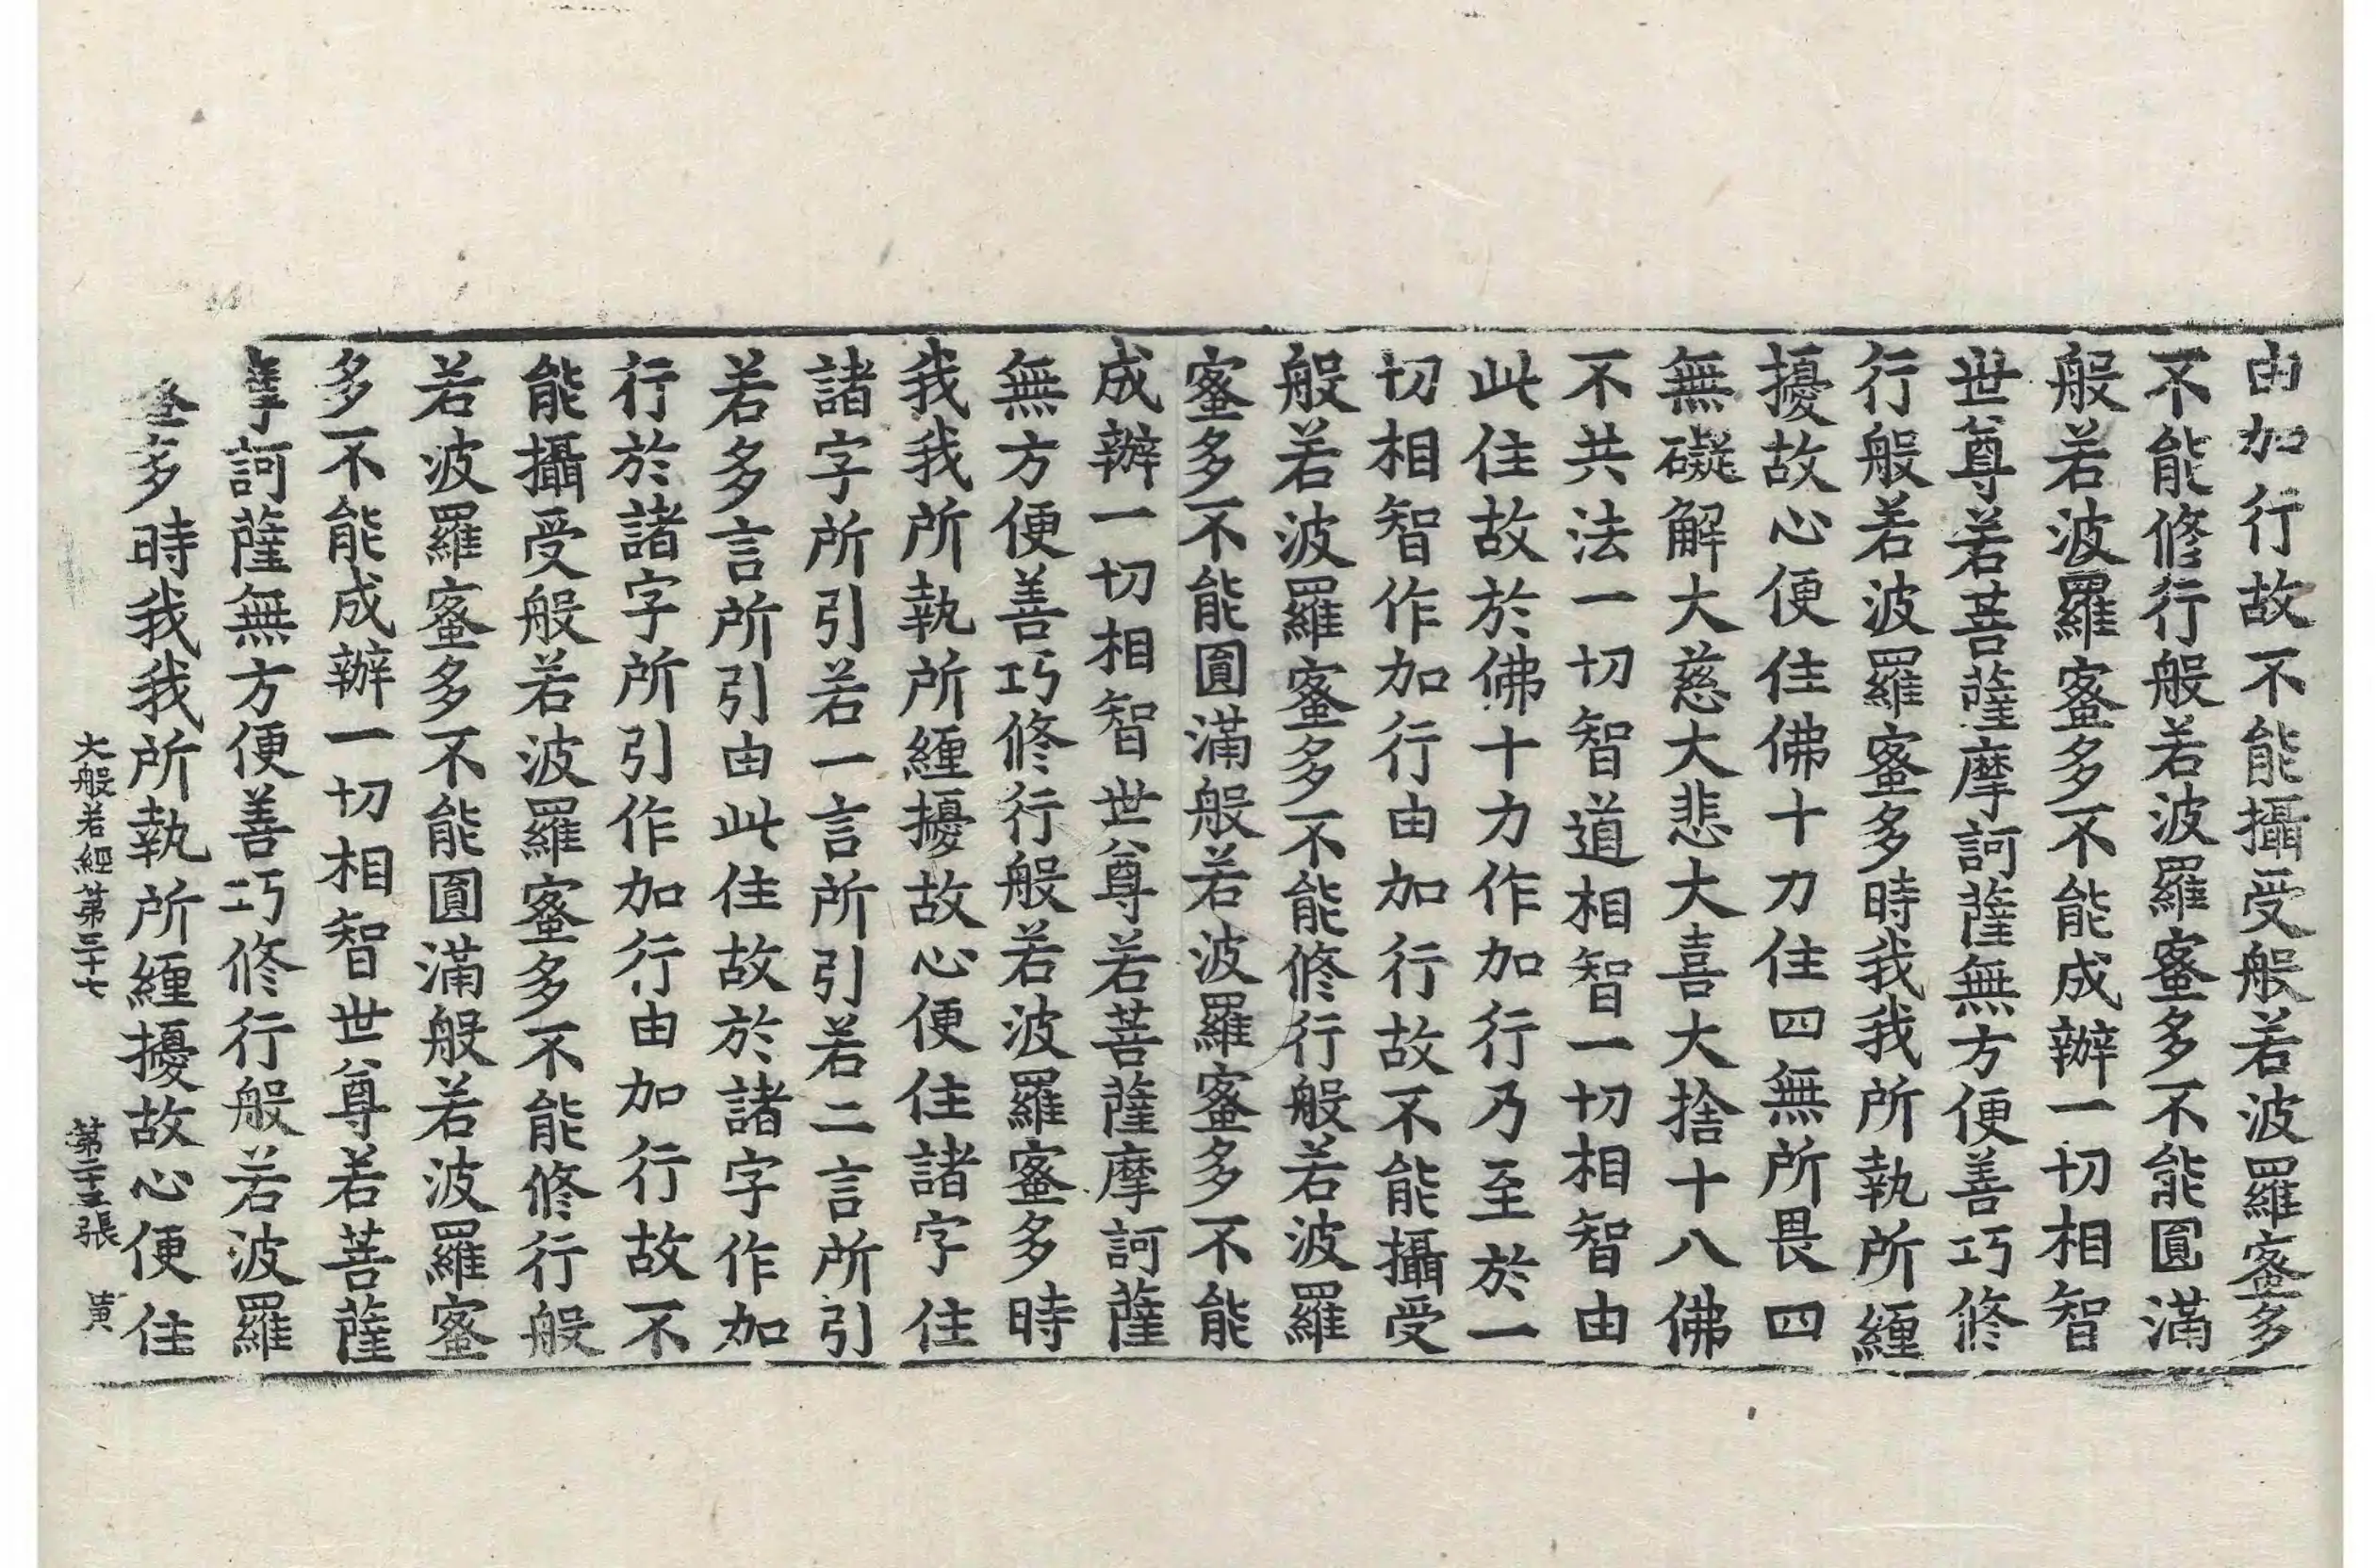 由加行故不能攝受般若波羅蜜多
不能修行般若波羅蜜多不能圓滿
般若波羅蜜多不能成辦一切相智
世尊若菩薩摩訶薩無方便善巧修
行般若波羅蜜多時我我所執所纏
擾故心便住佛十力住四無所畏四
無礙解大慈大悲大喜大捨十八佛
不共法一切智道相智一切相智由
此住故於佛十力作加行乃至於一
切相智作加行由加行故不能攝受
般若波羅蜜多不能修行般若波羅
蜜多不能圓滿般若波羅蜜多不能
成辦一切相智世尊若菩薩摩訶薩
無方便善巧修行般若波羅蜜多時
我我所執所纏擾故心便住諸字住
諸字所引若一言所引若二言所引
若多言所引由此住故於諸字作加
行於諸字所引作加行由加行故不
能攝受般若波羅蜜多不能修行般
若波羅蜜多不能圓滿般若波羅蜜
多不能成辦一切相智世尊若菩薩
摩訶薩無方便善巧修行般若波羅
蜜多時我我所執所纏擾故心便住
大般若經第三十七 第二十五張 黃